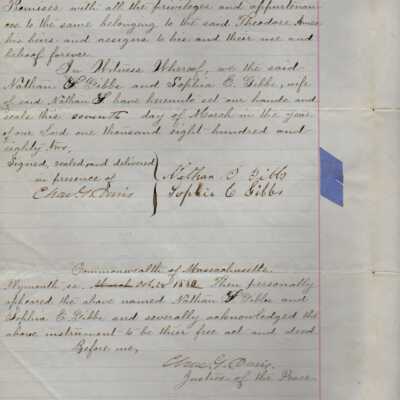 Premises with all the privileges and appurtenan
ces to the same belonging to the said Theodore Ames
his heirs and assigns to his and their use and
behoof forever.
In Witness Whereof, we the said
Nathan S Gibbs and Sophia C. Gibbs, wife
of said Nathan S have hereunto set our hands and
seals this seventh day of March in the year
of our Lord one thousand eight hundred and
eighty two.
Signed, sealed and delivered
in presence of
Chas. G. Davis
Nathan S Gibbs
Sophia C Gibbs
Commonwealth of Massachusetts
Plymouth, ss. March Oct. 1882 Then personally
appeared the above named Nathan S Gibbs and
Sophia C Gibbs and severally acknowledged the
above instrument to be their free act and deed
Before me,
Chas. G. Davis,
Justice of the Peace.